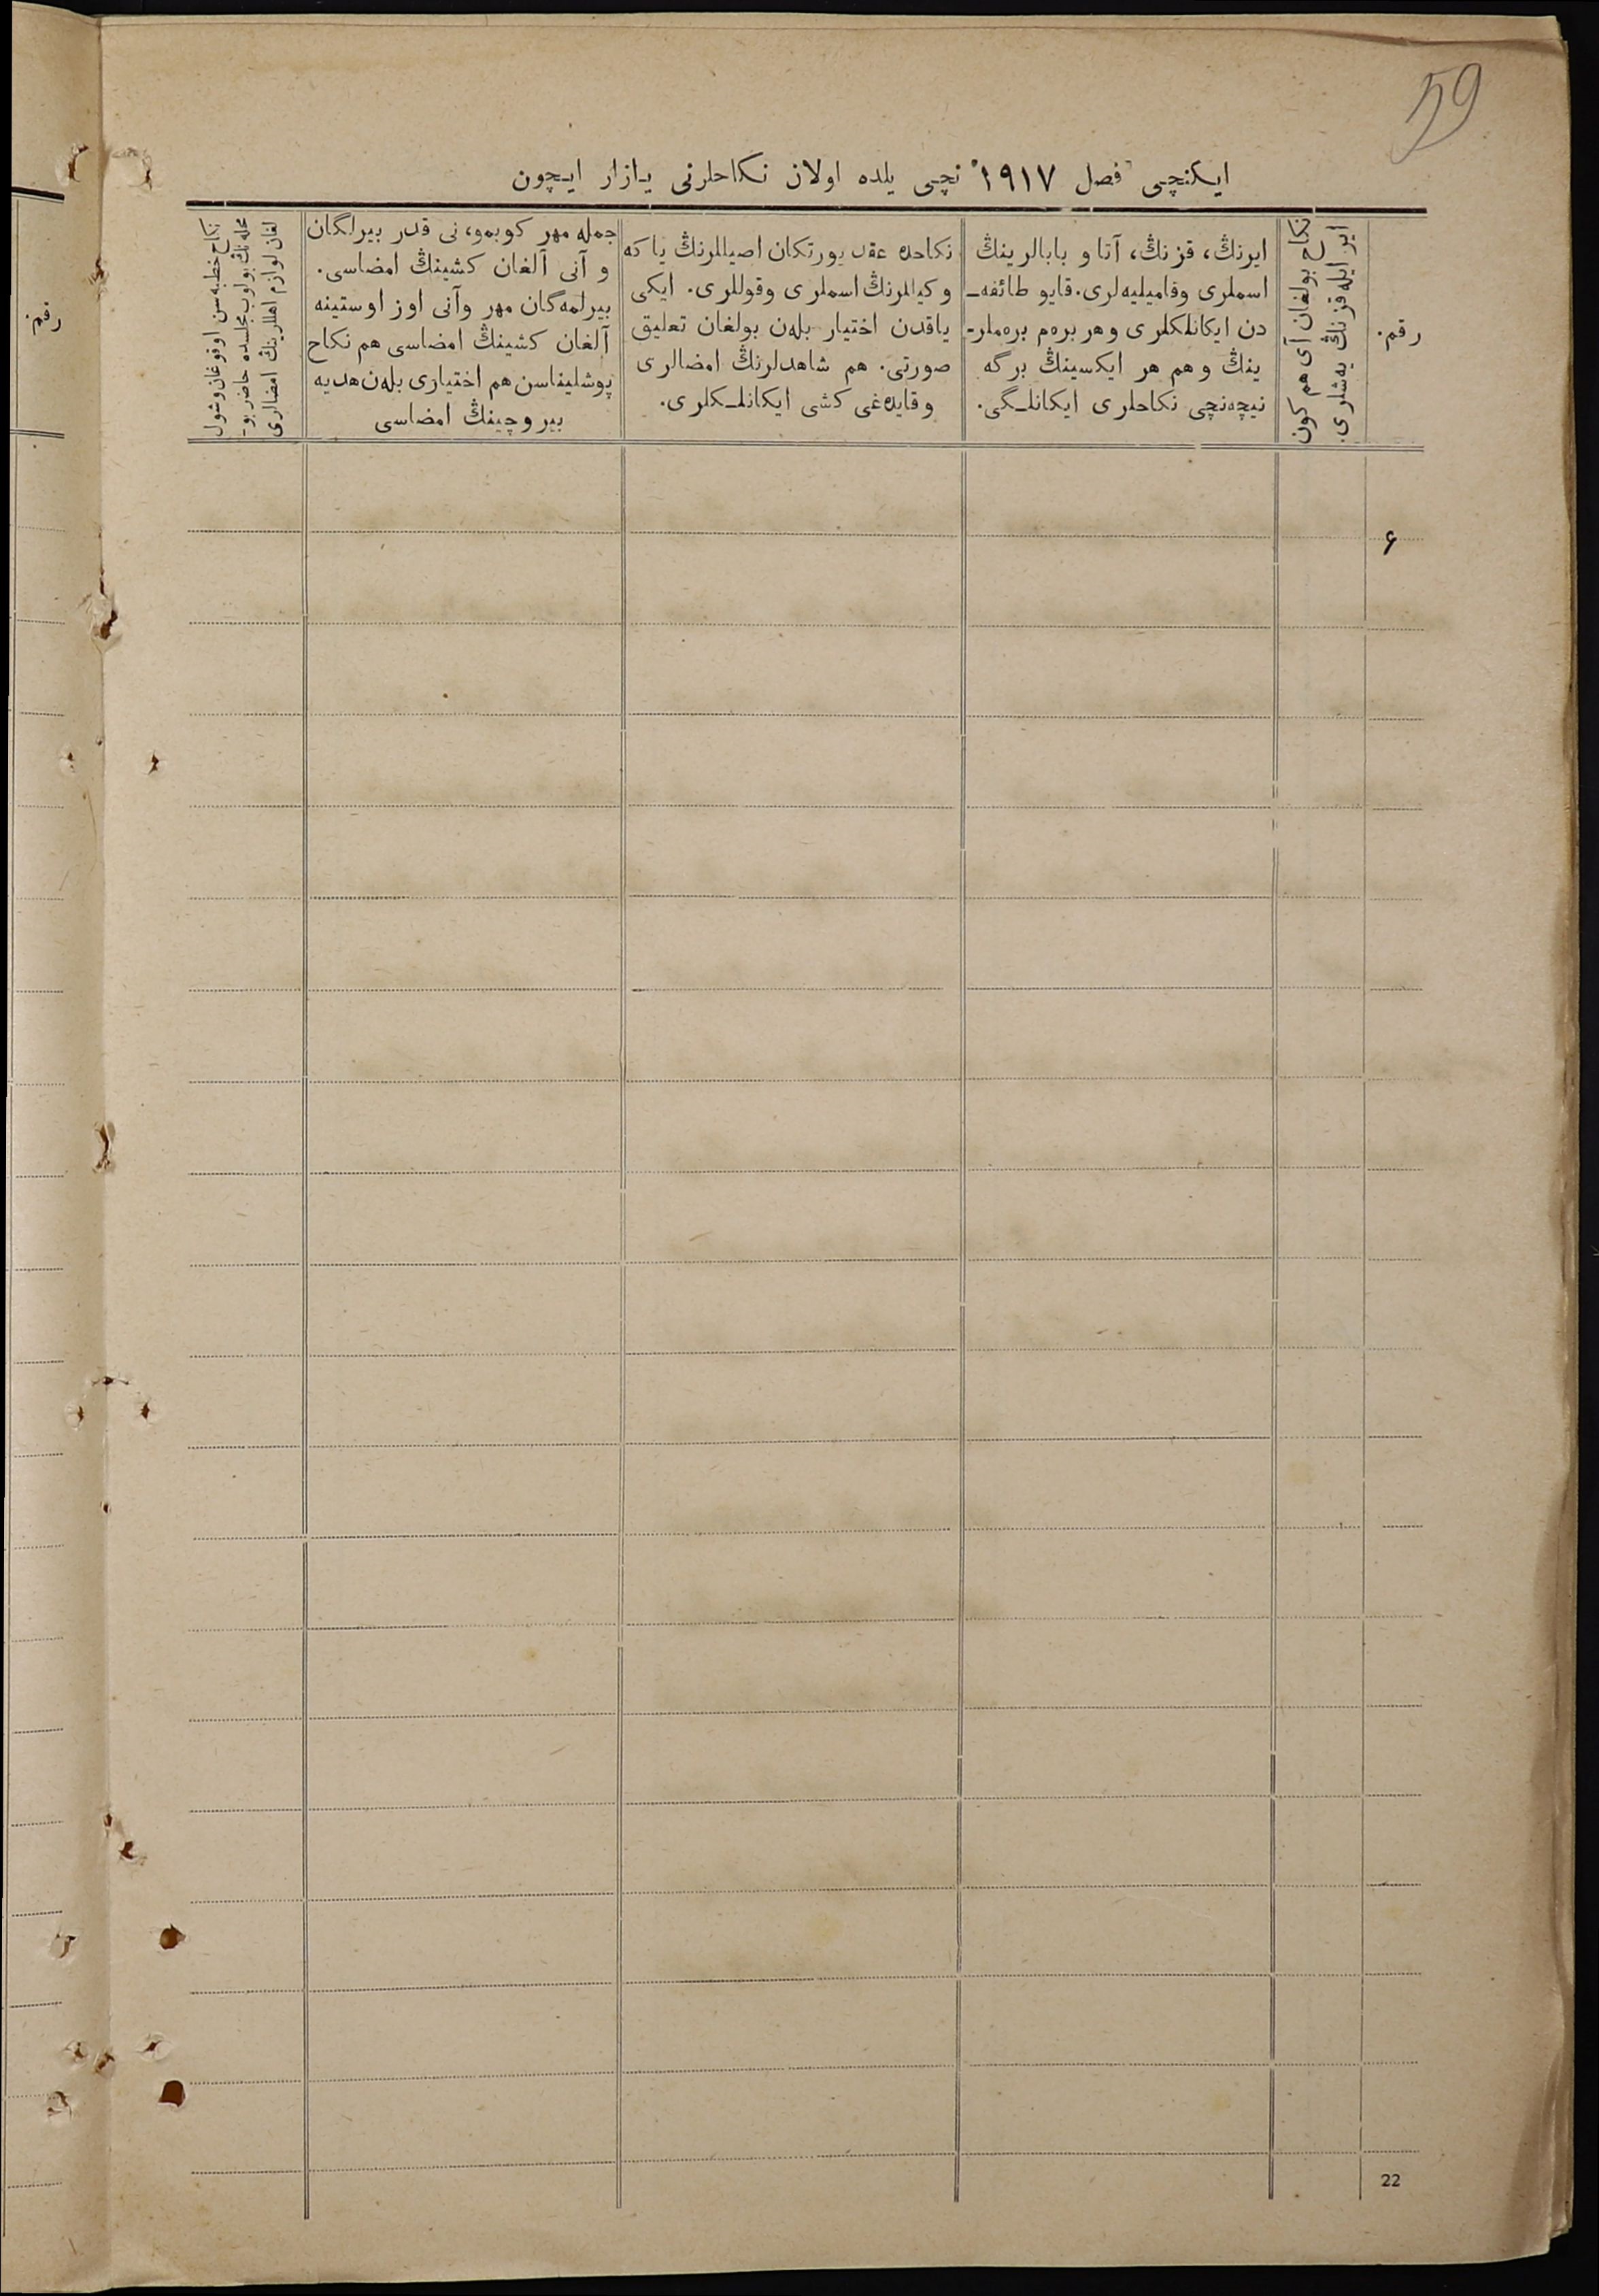 59
ایکنچی فصل ١٩١٧ نچی یلده اولان نکاحلرنی یازار ایچون
رقم.
نکاح بولغان آی هم کون
ایر ایله قزنڭ یه‌شلری.
ایرنڭ، قزنڭ، آتا و بابالرینڭ
اسملری وفامیلیه‌لری. قایو طائفه‌ـ
دن ایکانلکلری وهر بره‌م بره‌ملرـ
ینڭ وهم هر ایکسینڭ برگه
نیچه‌نچی نکاحلری ایکانلـگی.
نکاحده عقد یورتکان اصیللرنڭ یا که
وکیللرنڭ اسملری وقوللری. ایکی
یاقدن اختیار بله‌ن بولغان تعلیق
صورتی. هم شاهدلرنڭ امضالری
وقایده‌غی کشی ایکانلـکلری.
جمله مهر کوبمو، نی قدر بیرلگان
و آنی آلغان کشینڭ امضاسی.
بیرلمه‌گان مهر وآنی اوز اوستینه
آلغان کشینڭ امضاسی هم نکاح
پوشلیناسن هم اختیاری بله‌ن هدیه
بیروچینڭ امضاسی
نکاح خطبه‌سن اوقوغان وشول
محله‌نڭ بولوب مجلسده حاضر بوـ
لغان لوازم اهللرینڭ امضالری
رقم.
۶
22